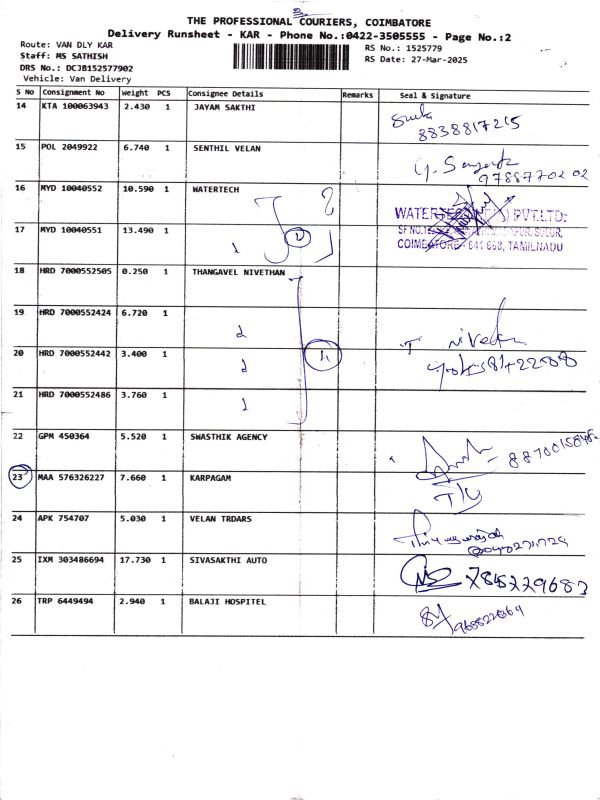 THE PROFESSIONAL COURIERS, COIMBATORE
Delivery Runsheet - KAR - Phone No.:0422-3505555 - Page No.:2
Route: VAN DLY KAR
Staff: MS SATHISH
DRS No.: DCJB152577902
Vehicle: Van Delivery
RS No.: 1525779
RS Date: 27-Mar-2025
S No Consignment No Weight PCS Consignee Details Remarks Seal & Signature
14 KTA 100063943 2.430 1 JAYAM SAKTHI
8838817215
15 POL 2049922 6.740 1 SENTHIL VELAN
9788770202
16 MYD 10040552 10.590 1 WATERTECH
17 MYD 10040551 13.490 1
COIMBATORE - 641 668, TAMILNADU
18 HRD 7000552505 0.250 1 THANGAVEL NIVETHAN
19 HRD 7000552424 6.720 1
20 HRD 7000552442 3.400 1
21 HRD 7000552486 3.760 1
22 GPM 450364 5.520 1 SWASTHIK AGENCY
23 MAA 576326227 7.660 1 KARPAGAM
24 APK 754707 5.030 1 VELAN TRDARS
25 IXM 303486694 17.730 1 SIVASAKTHI AUTO
26 TRP 6449494 2.940 1 BALAJI HOSPITEL